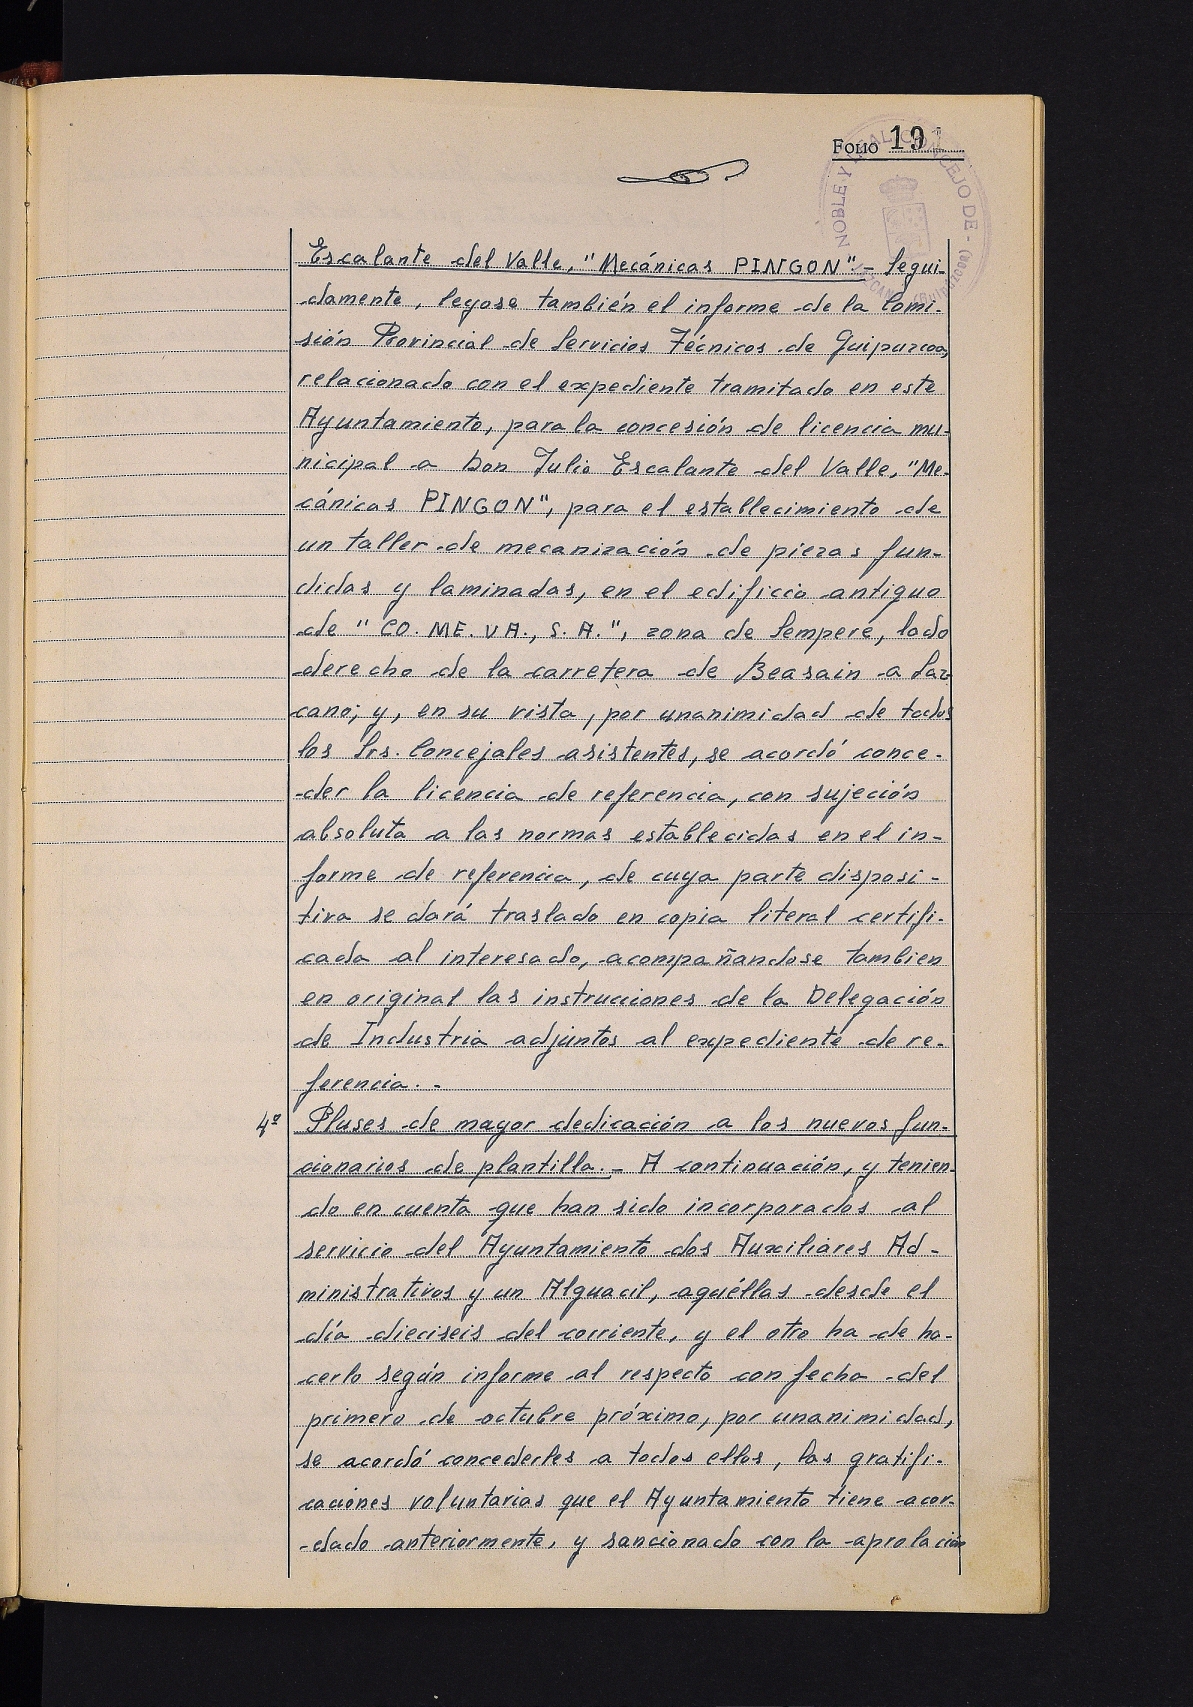 FOLIO 191
NOBLE Y LEAL CONCEJO DE - LAZCANO (Guipuzcoa)
Escalante del Valle, "Mecánicas PINGON".- Segui-
damente, leyose también el informe de la Comi-
sión Provincial de Servicios Técnicos de Guipuzcoa,
relacionado con el expediente tramitado en este
Ayuntamiento, para la concesión de licencia mu-
nicipal a Don Julio Escalante del Valle, "Me-
cánicas PINGON", para el establecimiento de
un taller de mecanización de piezas fun-
didas y laminadas, en el edificio antiguo
de "CO. ME. VA., S. A.", zona de Sempere, lado
derecho de la carretera de Beasain a Laz
cano; y, en su vista, por unanimidad de todos
los Srs. Concejales asistentes, se acordó conce-
der la licencia de referencia, con sujeción
absoluta a las normas establecidas en el in-
forme de referencia, de cuya parte disposi-
tiva se dará traslado en copia literal certifi-
cada al interesado, acompañandose tambien
en original las instrucciones de la Delegación
de Industria adjuntos al expediente de re-
ferencia. -
4º Pluses de mayor dedicación a los nuevos fun-
cionarios de plantilla.- A continuación, y tenien-
do en cuenta que han sido incorporados al
servicio del Ayuntamiento dos Auxiliares Ad-
ministrativos y un Alguacil, aquéllas desde el
día dieciseis del corriente, y el otro ha de ha-
cerlo según informe al respecto con fecha del
primero de octubre próximo, por unanimidad,
se acordó concederles a todos ellos, las gratifi-
caciones voluntarias que el Ayuntamiento tiene acor-
dado anteriormente, y sancionado con la aprobación